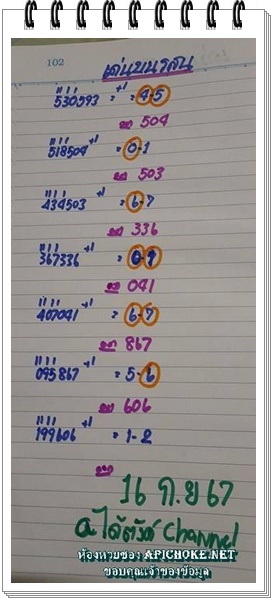 102
เด่นบนรสน
530593 +1 = 4-5
ออก 504
518504 +1 = 0-1
ออก 503
434503 +1 = 6-7
ออก 336
367336 +1 = 0-9
ออก 041
407041 +1 = 6-7
ออก 867
095867 +1 = 5-6
ออก 606
199606 +1 = 1-2
ออก
16 ก.ย 67
Channel
ห้องหวยซอง APICHOKE.NET
ขอบคุณเจ้าของข้อมูล